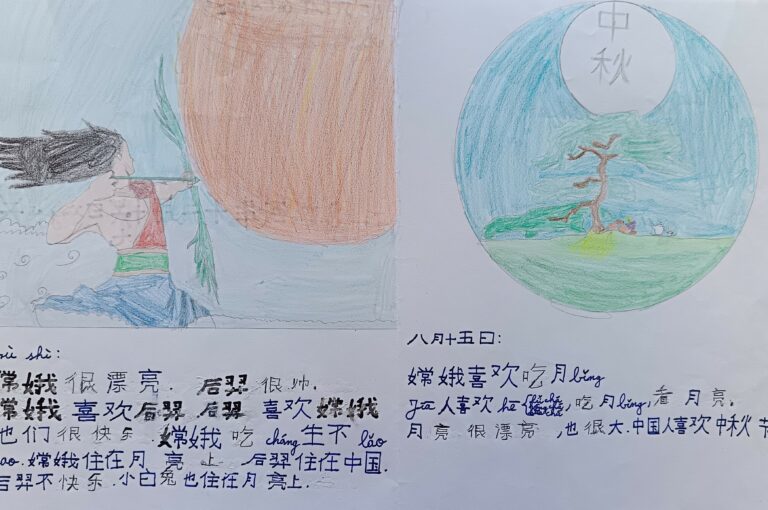 ù shì:
嫦娥很漂亮. 后羿很帅.
嫦娥喜欢后羿 后羿喜欢嫦娥
也们很快乐. 嫦娥吃 cháng生不 lǎo
ao. 嫦娥住在月亮上. 后羿住在中国.
后羿不快乐. 小白兔也住在月亮上.
中
秋
八月十五日:
嫦娥喜欢吃月bǐng
人喜欢 hē, 吃月bǐng, 看月亮.
月亮很漂亮, 也很大. 中国人喜欢中秋节